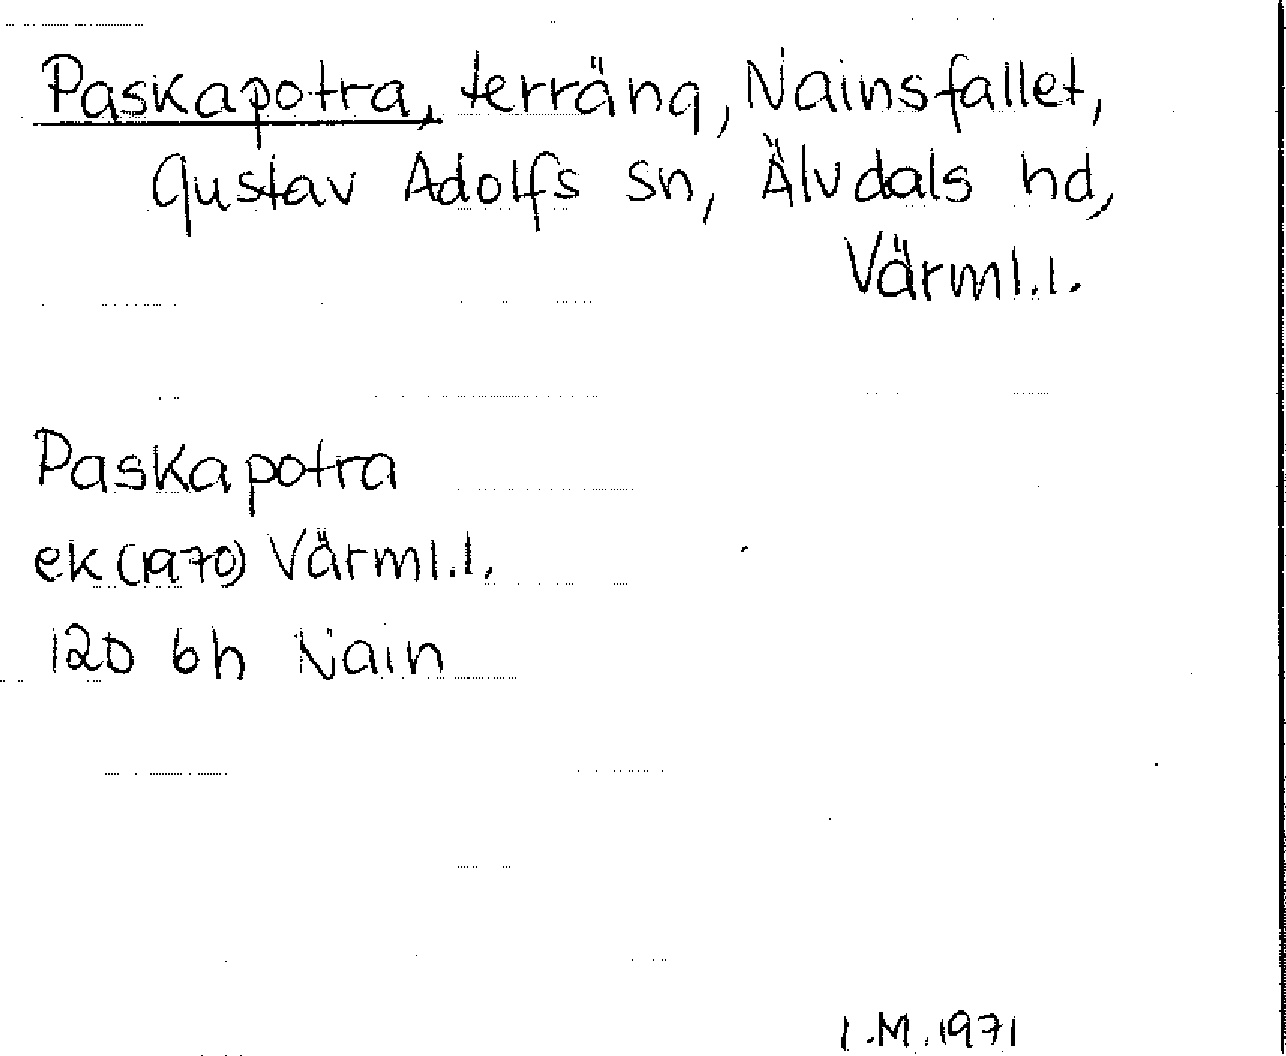 Paskapotra, terräng, Nainsfallet,
Gustav Adolfs sn, Älvdals hd,
Värml.l.
Paskapotra
ek (1970) Värml.l.
120 6h Nain
I.M. 1971